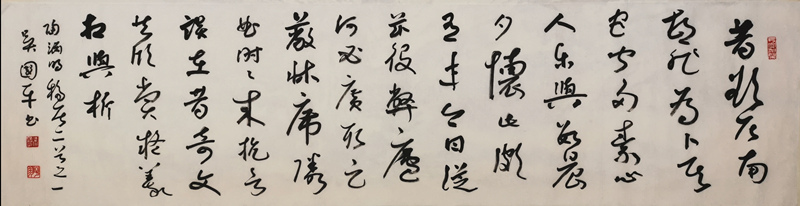 昔欲居南
村非為卜其
宅聞多素心
人樂與數晨
夕懷此頗
有年今日從
茲役弊廬
何必廣取足
蔽床席鄰
曲時々來抗言
談在昔奇文
共欣賞疑義
相與析
陶淵明移居二首之一
吳國平書